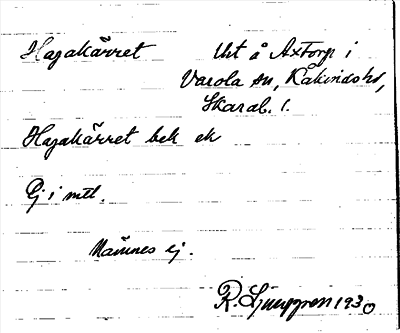 Hagakärret Urt å Axtorp i
Varola sn, Kåkinds hd,
Skarab. l.
Hagakärret bek ek
Ej i mtl.
Nämnes ej.
R. Ljunggren 1930